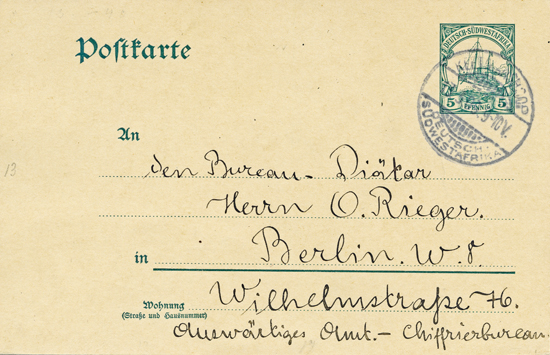 Postkarte
DEUTSCH-SÜDWESTAFRIKA
5 PFENNIG 5
DEUTSCH-
SÜDWESTAFRIKA
An
den Bureau-Diätar
Herrn O. Rieger.
in Berlin. W. 8.
Wohnung Wilhelmstraße 76.
(Straße und Hausnummer)
Auswärtiges Amt. - Chiffrierbureau.
13